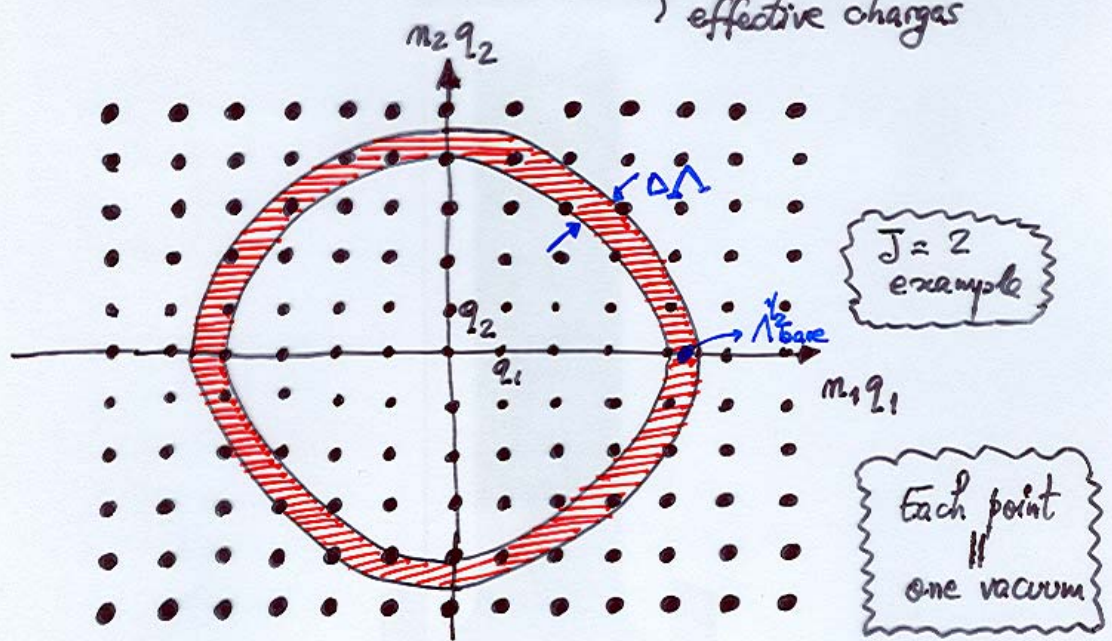 ) effective chargas
n₂ q₂
ΔΛ
J = 2
example
q₂
Λ^{1/2}_{bare}
q₁
n₁q₁
Each point
||
one vacuum